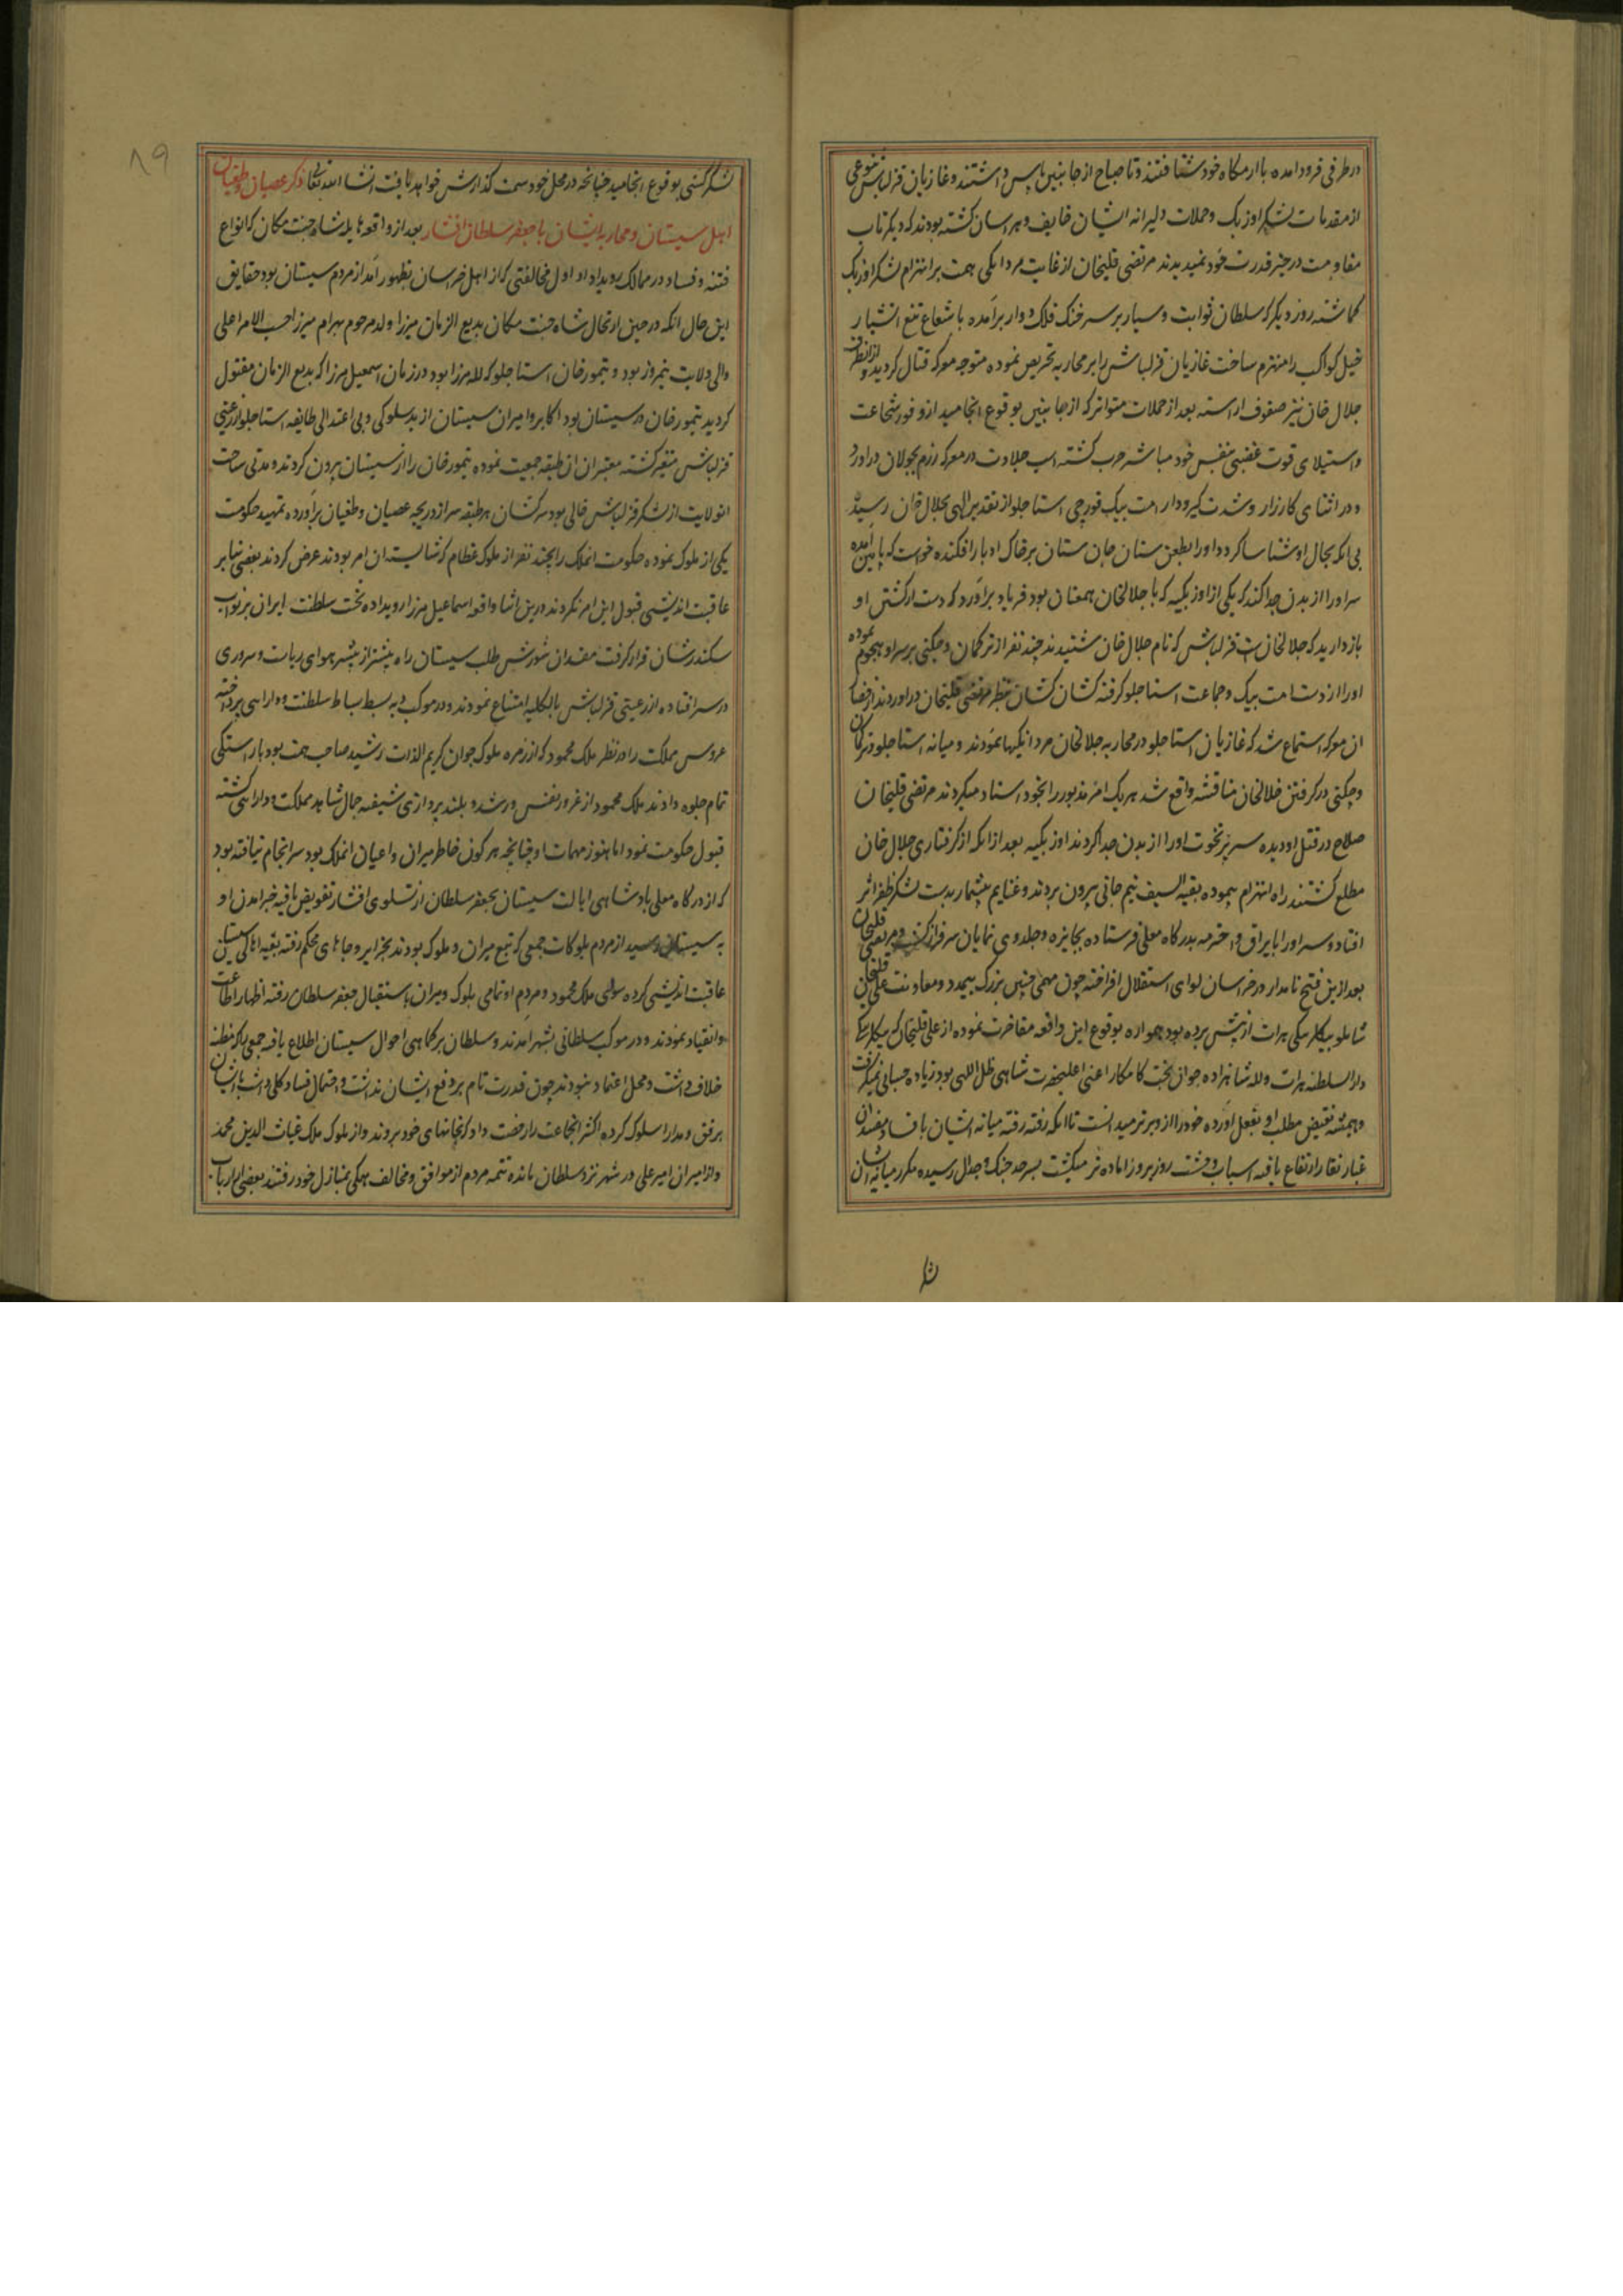 در طرفی فرود امده بارامکاه خود شتافتند و تا صباح از جانبین پاس داشتند و غازیان قزلباش بنوعی
از مقدمات لشکر اوزبک و حملات دلیرانه ایشان خایف و هراسان کشته بودند که دیکر تاب
مقاومت در حیز قدرت خود نمیدیدند مرتضی قلیخان از غایت مردانکی همت بر انهزام لشکر اوزبک
کماشته روز دیکر که سلطان ثوابت و سیار بر سر خنک فلک دوار برامده باشعاع تیغ اتشبار
خیل کواکب را منهزم ساخت غازیان قزلباش را بر محاربه تحریص نموده متوجه معرکه قتال کردید و از انطرف
جلال خان نیز صفوف اراسته بعد از حملات متواتر که از جانبین بوقوع انجامید از وفور شجاعت
و استیلای قوت غضبی بنفس خود مباشر حرب کشته اسب جلادت در معرکه رزم بجولان دراورد
و در اثنای کارزار و شدت کیرودار امت بیک قورچی استاجلو از تقدیر الهی بجلال خان رسیده
بی انکه بحال او شناسا کردد او را بطعن سنان جان ستان بر خاک ادبار افکنده خواست که پایین آمده
سر او را از بدن جدا کند که یکی از اوزبکیه که با جلالخان همعنان بود فریاد براورد که دست از کشتن او
بازدارید که جلالخانست قزلباش که نام جلال خان شنیدند چند نفر از ترکمان و چکنی بر سر او هجوم نموده
او را از دست امت بیک و جماعت استاجلو کرفته کشان کشان بنظر مرتضی قلیخان دراوردند از
ان معرکه استماع شد که غازیان استاجلو در محاربه جلالخان مردانکیها نمودند و میانه استاجلو و ترکمان
و چکنی در کرفتن جلالخان مناقشه واقع شد هر یک امر مذبور را بخود استناد میکردند مرتضی قلیخان
صلاح در قتل او دیده سر پر نخوت او را از بدن جدا کردند اوزبکیه بعد از انکه از کرفتاری جلال خان
مطلع کشتند راه انهزام پیموده بقیه السیف نیم جانی بیرون بردند و غنایم بیشمار بدست لشکر ظفر اثر
افتاد و سر او را با یراق و اخترمه بدرکاه معلی فرستاده بجایزه و جلدوی نمایان سرفراز کشت و مرتضی قلیخان
بعد ازین فتح نامدار در خراسان لوای استقلال افراخته چون مهمی چنین بزرک بیمدد و معاونت علی قلیخان
شاملو بیکلربیکی هرات از پیش برده بود همواره بوقوع این واقعه مفاخرت نموده از علی قلیخان که بیکلربیکی
دار السلطنه هرات و لله شاهزاده جوان بخت کامکار اعنی اعلیحضرت شاهی ظل اللهی بود زیاده حسابی نمیکرفت
و همیشه نقیض مطلب او بفعل آورده خود را از و برتر میدانست تا انکه رفته رفته میانه ایشان بافساد مفسدان
غبار نقار ارتفاع یافته اسباب وحشت روز بروز اماده تر میکشت بسرحد جنک و جدال رسیده مکرر میانه ایشان
شا
۸۹
لشکرکشی بوقوع انجامید چنانچه در محل خود سمت کذارش خواهد یافت انشا الله تعالی ذکر عصیان و طغیان
اهل سیستان و محاربه ایشان با جعفر سلطان افشار بعد از واقعه هایله شاه جنت مکان که انواع
فتنه و فساد در ممالک رویداد اول مخالفتی که از اهل خراسان بظهور آمد از مردم سیستان بود حقایق
این حال انکه در حین ارتحال شاه جنت مکان بدیع الزمان میرزا ولد مرحوم بهرام میرزا حسب الامر اعلی
والی ولایت نیمروز بود و تیمور خان استاجلو که لله میرزا بود در زمان اسمعیل میرزا که بدیع الزمان مقتول
کردید تیمور خان در سیستان بود اکابر و امیران سیستان از بدسلوکی و بی اعتدالی طایفه استاجلو از رعیتی
قزلباش متنفر کشته معتبران ان طبقه جمعیت نموده تیمور خان را از سیستان بیرون کردند و مدتی ساحت
انولایت از لشکر قزلباش خالی بود سرکشان هر طبقه سر از دریچه عصیان و طغیان برآورده تمهید حکومت
یکی از ملوک نموده حکومت انملک را بچند نفر از ملوک عظام که شایسته ان امر بودند عرض کردند بعضی بنا بر
عاقبت اندیشی قبول این امر نکردند درین اثنا واقعه اسماعیل میرزا رویداده تخت سلطنت ایران بر نواب
سکندرشان قرار کرفت مفسدان شورش طلب سیستان راه بیشتر از پیشتر هوای ریاست و سروری
در سر افتاده از رعیتی قزلباش بالکلیه امتناع نمودند و در موکب به بسط بساط سلطنت و دارایی پرداخته
عروس مملکت را در نظر ملک محمود که از زمره ملوک جوان کریم الذات رشید صاحب همت بود باراستکی
تمام جلوه دادند ملک محمود از غرور نفس و رشد و بلندپروازی شیفته جمال شاهد مملکت و دارایی کشته
قبول حکومت نمود اما هنوز مهمات او چنانچه مرکوز خاطر میران و اعیان انملک بود سرانجام نیافته بود
که از درکاه معلی پادشاهی ایالت سیستان بجعفر سلطان ارشلوی افشار تفویض یافته خبر امدن او
به سیستان رسید از مردم بلوکات جمعی که تبع میران و ملوک بودند بجزایر و جاهای محکم رفته بقیه اهالی سیستان
عاقبت اندیشی کرده سوای ملک محمود و مردم او تمامی ملوک و میران باستقبال جعفر سلطان رفته اظهار اطاعت
و انقیاد نمودند و در موکب سلطانی بشهر آمدند و سلطان بر کماهی احوال سیستان اطلاع یافته جمعی را که مظنه
خلاف داشت و محل اعتماد نبودند چون قدرت تام بر دفع ایشان نداشت و احتمال فساد کلی داشت با ایشان
برفق و مدارا سلوک کرده اکثر انجماعت را رخصت داد که بخانهای خود بروند و از ملوک ملک غیاث الدین محمد
و از امیران امیر علی در شهر نزد سلطان مانده تتمه مردم از موافق و مخالف همکی بمنازل خود رفتند بعضی از ارباب